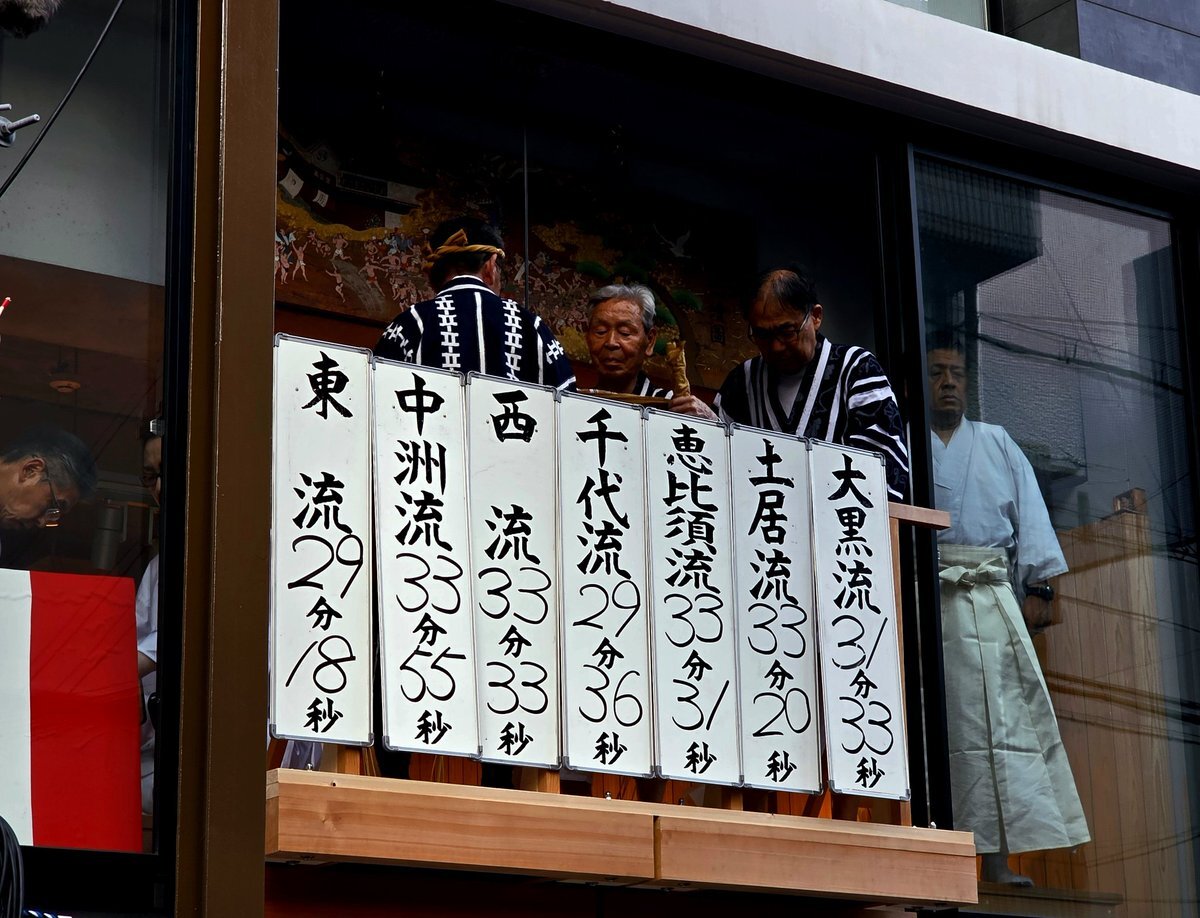 東 流 29分18秒
中洲流 33分55秒
西 流 33分33秒
千代流 29分36秒
恵比須流 33分31秒
土居流 33分20秒
大黒流 31分33秒